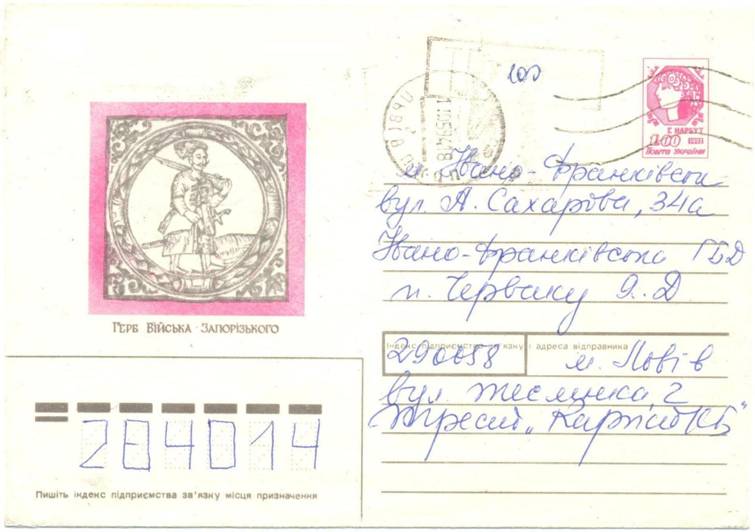 100
Г НАРБУТ
1.00
Пошта України
м. Івано-Франківськ
вул. А. Сахарова, 34а
Івано-Франківська ГБД
п. Черваку Я. Д
ГЕРБ ВІЙСЬКА ЗАПОРІЗЬКОГО
Індекс підприємства зв'язку і адреса відправника
290658 м. Львів
вул. 2
Трест
284014
Пишіть індекс підприємства зв'язку місця призначення